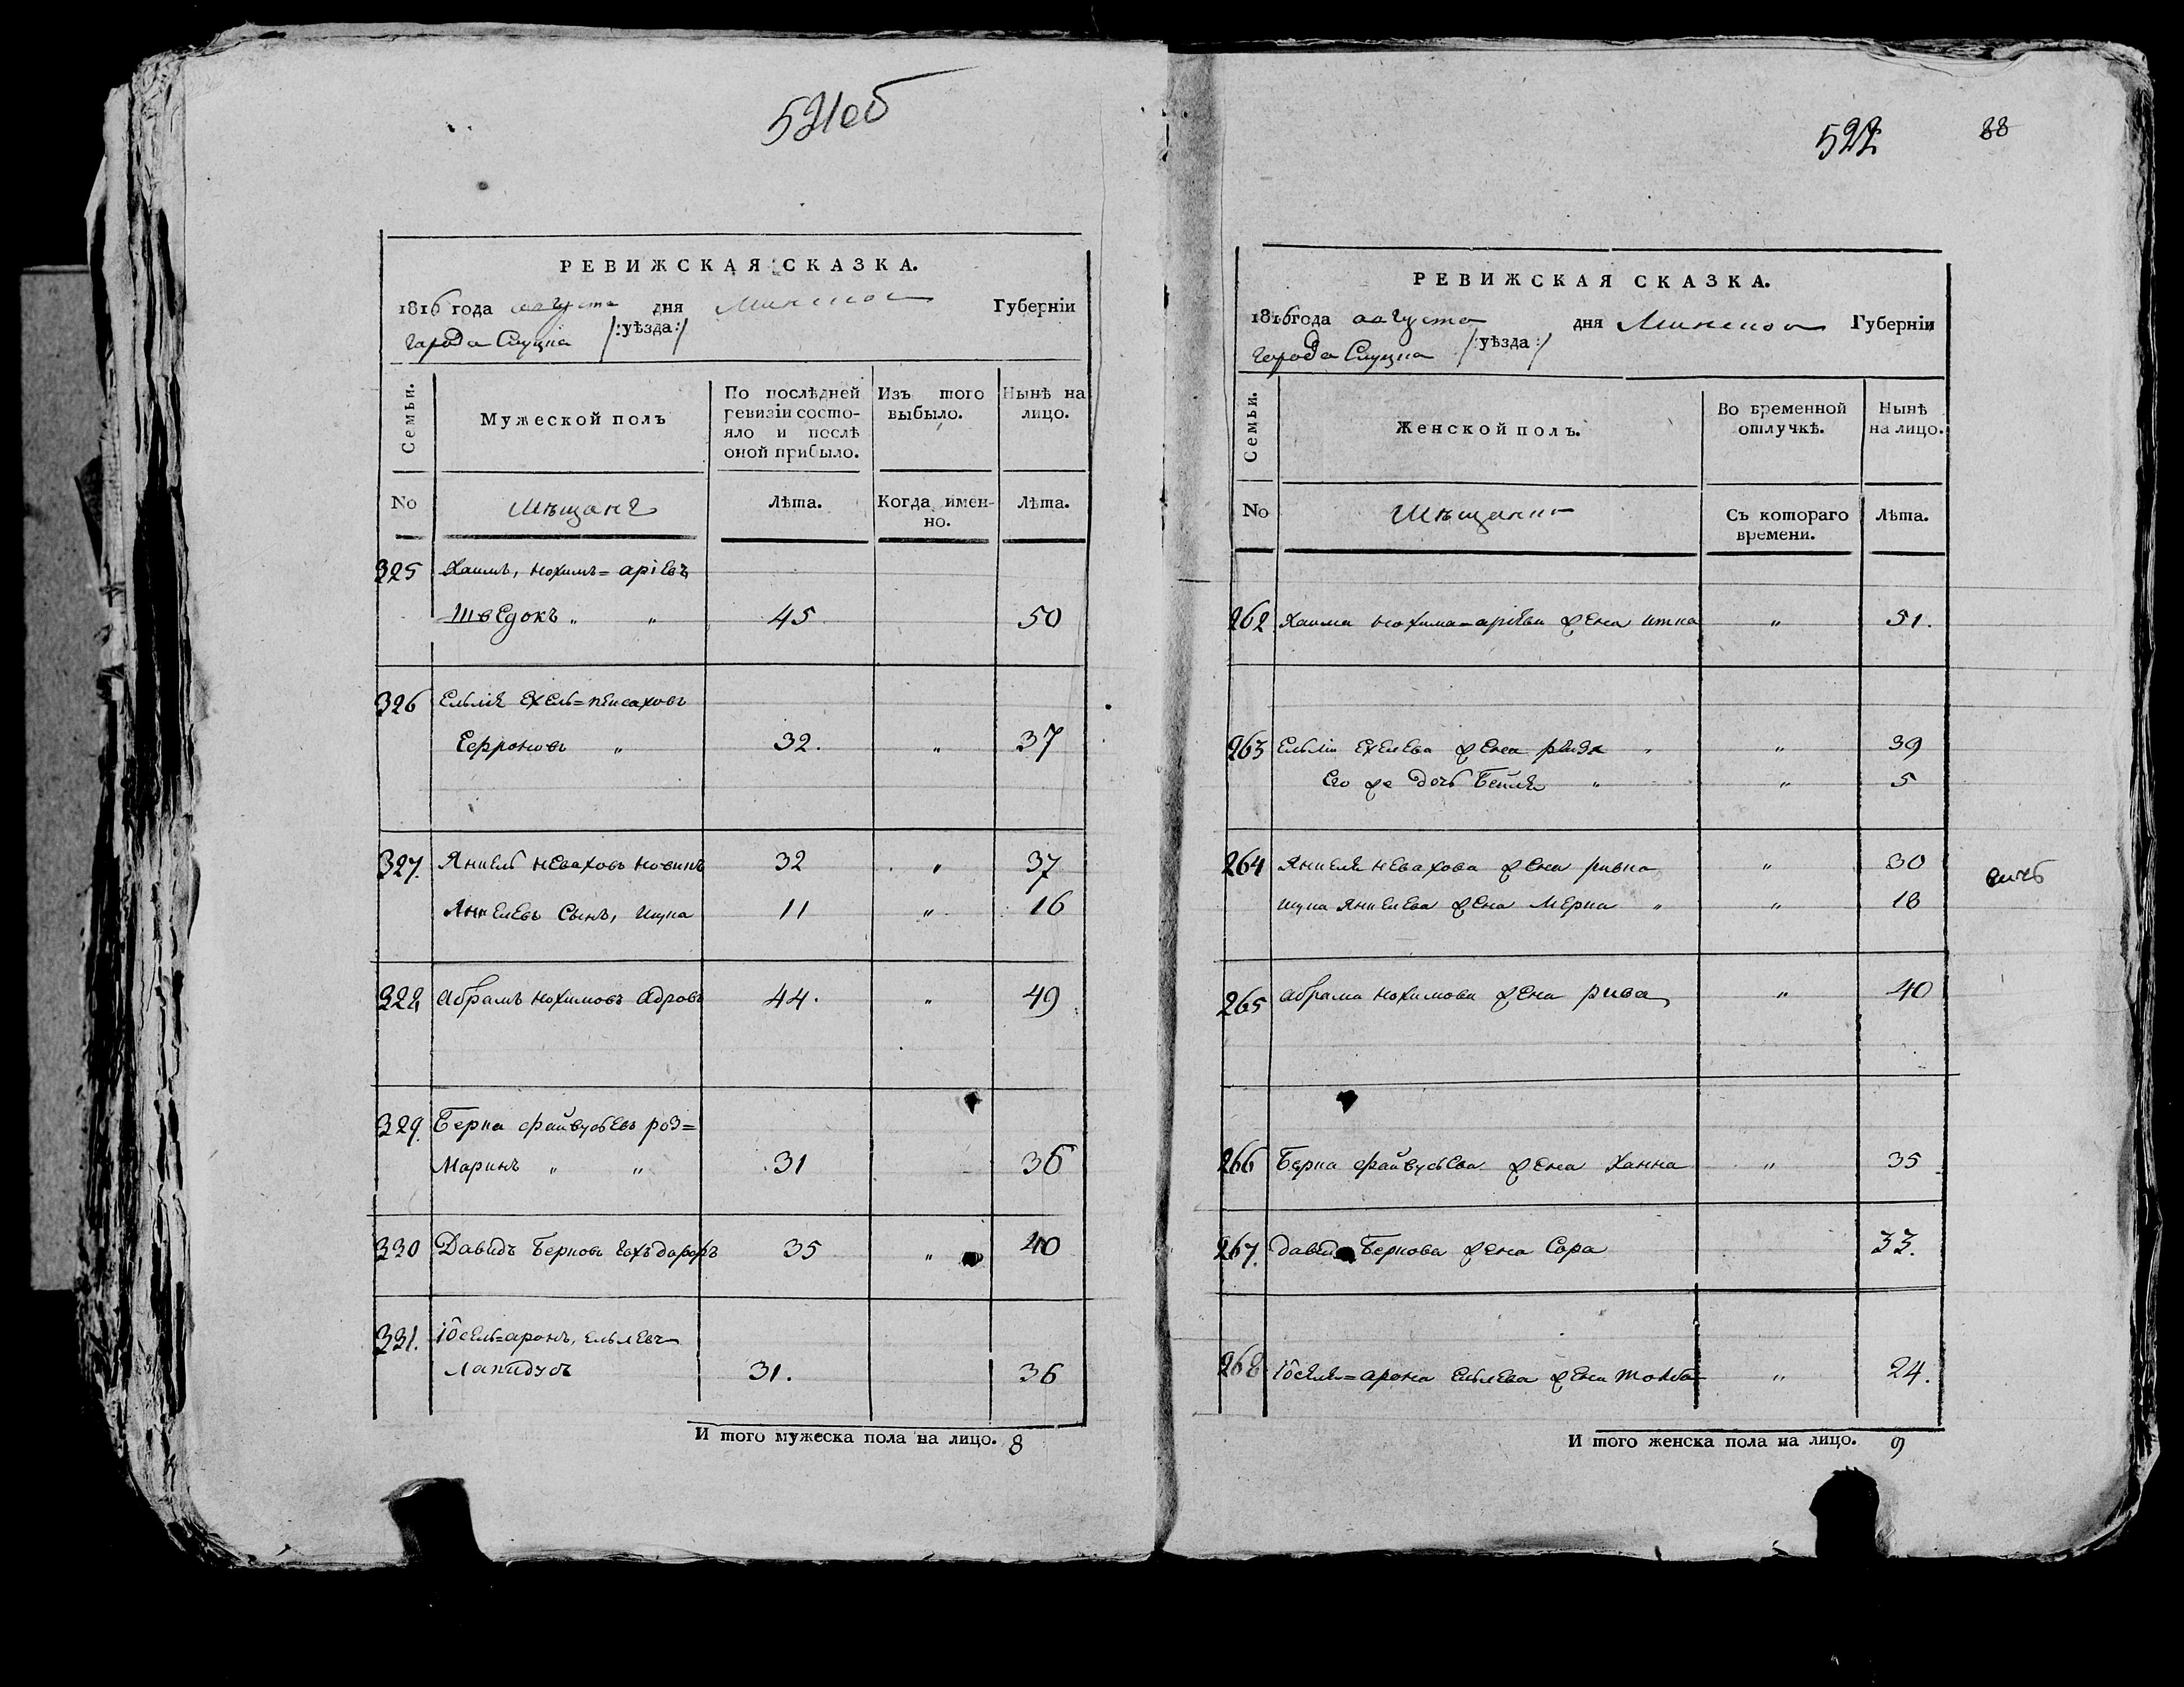 521об
РЕВИЖСКАЯ СКАЗКА.
1816 года августа дня Минской Губерніи
города Слуцка /:уѣзда:/
Семьи.
Мужеской полъ
По послѣдней ревизіи состо-
яло и послѣ оной прибыло.
Изъ того выбыло.
Нынѣ на лицо.
No
Мѣщанъ
Лѣта.
Когда имен-
но.
Лѣта.
325 Хаимъ, Нохимъ=Аріевъ
Шведокъ „ „ 45 50
326 Ельлія Ехель=Пейсаховъ
Ефроновъ „ 32. „ 37
327. Янкель Неваховъ Новикъ 32 „ 37
Янкелевъ Сынъ, Ицка 11 „ 16
328 Абрамъ Нохимовъ Адровъ 44. „ 49
329. Берка Файвусьевъ Роз=
Маринъ „ „ 31 36
330 Давидъ Берковъ 35 „ 40
331. Іосель=Аронъ, Ельлевъ
Лапидусъ 31. 36
И того мужеска пола на лицо. 8
522
88
РЕВИЖСКАЯ СКАЗКА.
1816 года августа дня Минской Губерніи
города Слуцка /:уѣзда:/
Семьи.
Женской полъ.
Во временной отлучкѣ.
Нынѣ на лицо.
No
Мѣщанки
Съ котораго времени.
Лѣта.
262 Хаима Нохима=Аріева жена Итка „ 51.
263 Ельліи Ехелева жена „ „ 39
Его же дочь Бейля „ „ 5
264 Янкеля Невахова жена Ривка „ 30
Ицка Янкелева жена Мерка „ „ 18
265 Абрама Нохимова жена Рива „ 40
266 Берка Файвусьева жена Ханна „ 35
267. Давида Беркова жена Сора 33.
268 Іоселя=Арона Ельлева жена Тольба „ 24.
И того женска пола на лицо. 9